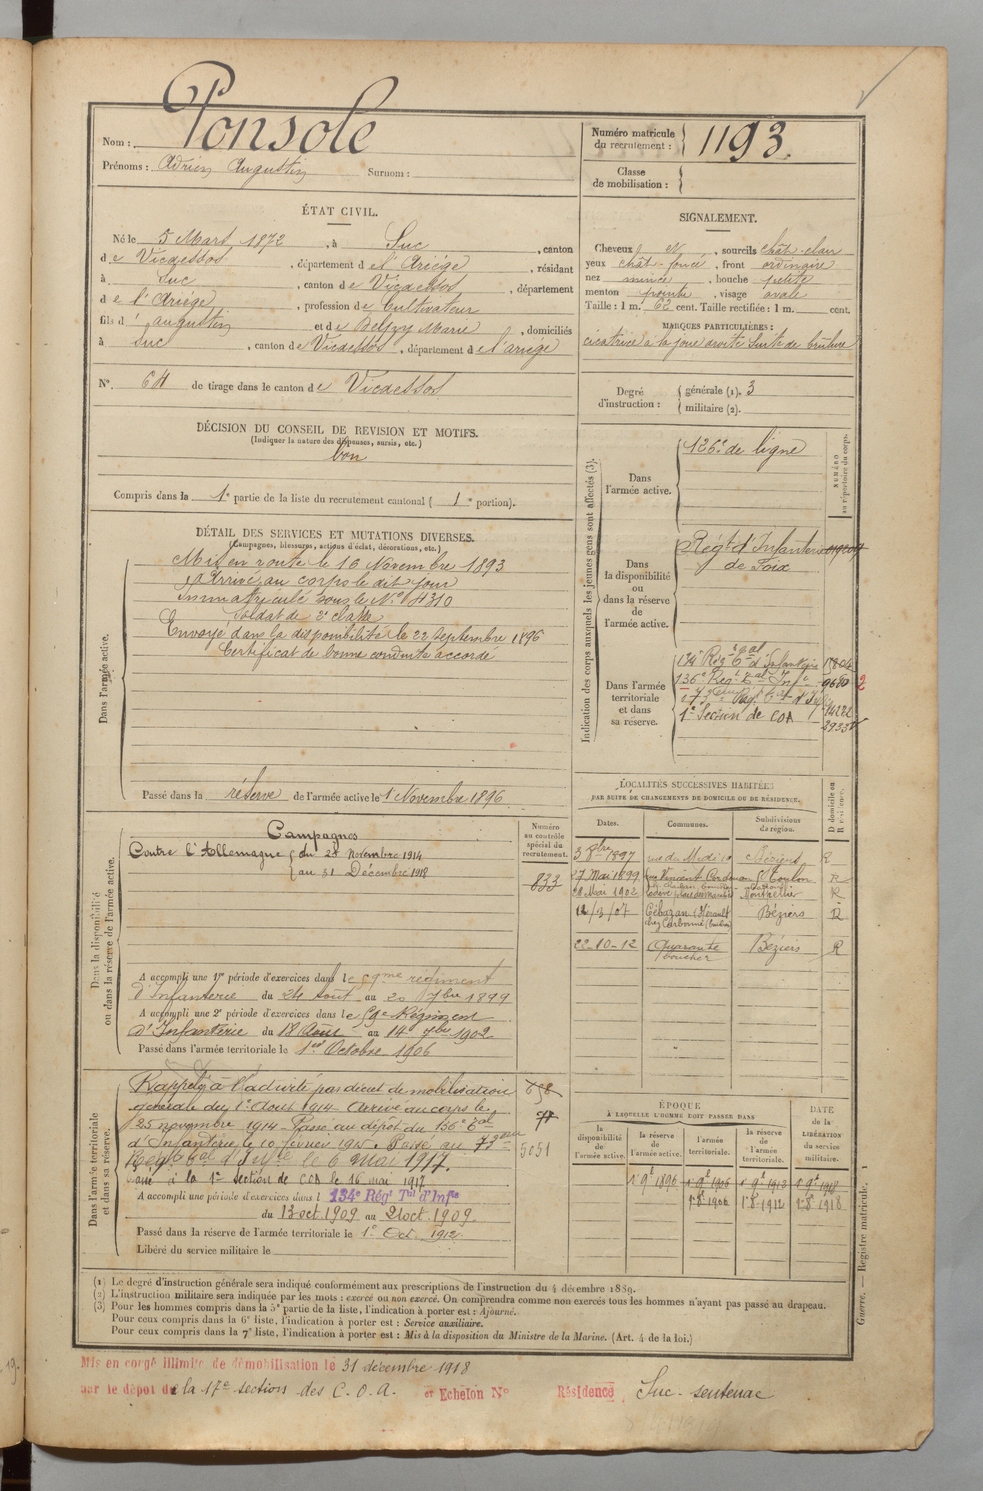 Nom : Ponsole
Prénoms : Adrien Augustin Surnom :
Numéro matricule du recrutement : 1193.
Classe de mobilisation :
ÉTAT CIVIL.
Né le 5 Mars 1872, à Suc, canton
de Vicdessos, département de l'Ariége, résidant
à Suc, canton de Vicdessos, département
de l'Ariége, profession de Cultivateur
fils d' augustin et de Marie, domiciliés
à Suc, canton de Vicdessos, département de l'ariége
N° 64 de tirage dans le canton de Vicdessos
SIGNALEMENT.
Cheveux N, sourcils chât-clair
yeux chât-foncé, front ordinaire
nez mince, bouche petite
menton pointu, visage ovale
Taille : 1 m. 62 cent. Taille rectifiée : 1 m. cent.
MARQUES PARTICULIÈRES :
cicatrice à la joue droite suite de brulure
Degré d'instruction : générale (1). 3
militaire (2).
DÉCISION DU CONSEIL DE REVISION ET MOTIFS.
(Indiquer la nature des dispenses, sursis, etc.)
bon
Compris dans la 1e partie de la liste du recrutement cantonal ( 1e portion).
DÉTAIL DES SERVICES ET MUTATIONS DIVERSES.
(Campagnes, blessures, actions d'éclat, décorations, etc.)
Dans l'armée active.
Mis en route le 16 Novembre 1893
Arrivé au corps le dit jour
Immatriculé sous le N° 4310
Soldat de 2e classe
Envoyé dans la disponibilité le 22 septembre 1896
Certificat de bonne conduite accordé
Passé dans la réserve de l'armée active le 1 Novembre 1896
Indication des corps auxquels les jeunes gens sont affectés (3).
NUMÉRO au répertoire du corps.
Dans l'armée active.
126e de ligne
Dans la disponibilité ou dans la réserve de l'armée active.
Régt d'Infanterie
de Foix
Dans l'armée territoriale et dans sa réserve.
134e Régt Tal d'Infanterie
136e Regt Tal Infie 9680 2
1e Section de COA
LOCALITÉS SUCCESSIVES HABITÉES
PAR SUITE DE CHANGEMENTS DE DOMICILE OU DE RÉSIDENCE.
Dates. Communes. Subdivisions de région. D domicile ou R résidence.
3 8bre 1897 rue du Midi Béziers R
27 Mai 1899 rue Vincent Toulon R
28 Mai 1902 Montpellier R
12/3/07 Cébazan (Hérault Béziers R
22-10-12 Quarante Béziers R
boucher
Dans la disponibilité ou dans la réserve de l'armée active.
Numéro au contrôle spécial du recrutement.
833
Campagnes
Contre l'Allemagne du 24 Novembre 1914
au 31 Décembre 1918
A accompli une 1re période d'exercices dans le 59me regiment
d'Infanterie du 24 aout au 20 7bre 1899
A accompli une 2e période d'exercices dans le 59e Régiment
d'Infanterie du 18 Aout au 14 7bre 1902
Passé dans l'armée territoriale le 1er Octobre 1906
Dans l'armée territoriale et dans sa réserve.
Rappelé à l'activité par décret de mobilisation
générale du 1er Aout 1914 Arrivé au corps le
25 novembre 1914 Passé au dépot du 136e Tal
d'Infanterie le 10 février 1915. Passé au
Régt Tal d'Infie le 6 Mai 1917.
Passé à la 1re section de COA le 16 mai 1917
5051
A accompli une période d'exercices dans l 134e Régt Tal d'Infie
du 13 oct 1909 au 21 oct. 1909
Passé dans la réserve de l'armée territoriale le 1e Oct. 1912.
Libéré du service militaire le
ÉPOQUE
À LAQUELLE L'HOMME DOIT PASSER DANS
DATE de la LIBÉRATION du service militaire.
la disponibilité de l'armée active. la réserve de l'armée active. l'armée territoriale. la réserve de l'armée territoriale.
1 9e 1896 1 9e 1906 1 9e 1912 1 9e 1918
1 8 1906 1 8 1912 1 8 1918
(1) Le degré d'instruction générale sera indiqué conformément aux prescriptions de l'instruction du 4 décembre 1889.
(2) L'instruction militaire sera indiquée par les mots : exercé ou non exercé. On comprendra comme non exercés tous les hommes n'ayant pas passé au drapeau.
(3) Pour les hommes compris dans la 5e partie de la liste, l'indication à porter est : Ajourné.
Pour ceux compris dans la 6e liste, l'indication à porter est : Service auxiliaire.
Pour ceux compris dans la 7e liste, l'indication à porter est : Mis à la disposition du Ministre de la Marine. (Art. 4 de la loi.)
Guerre. — Registre matricule. 1
Mis en congé illimité de démobilisation le 31 décembre 1918
par le dépot de la 17e sections des C.O.A. et Echelon N° Résidence Suc-sentenac